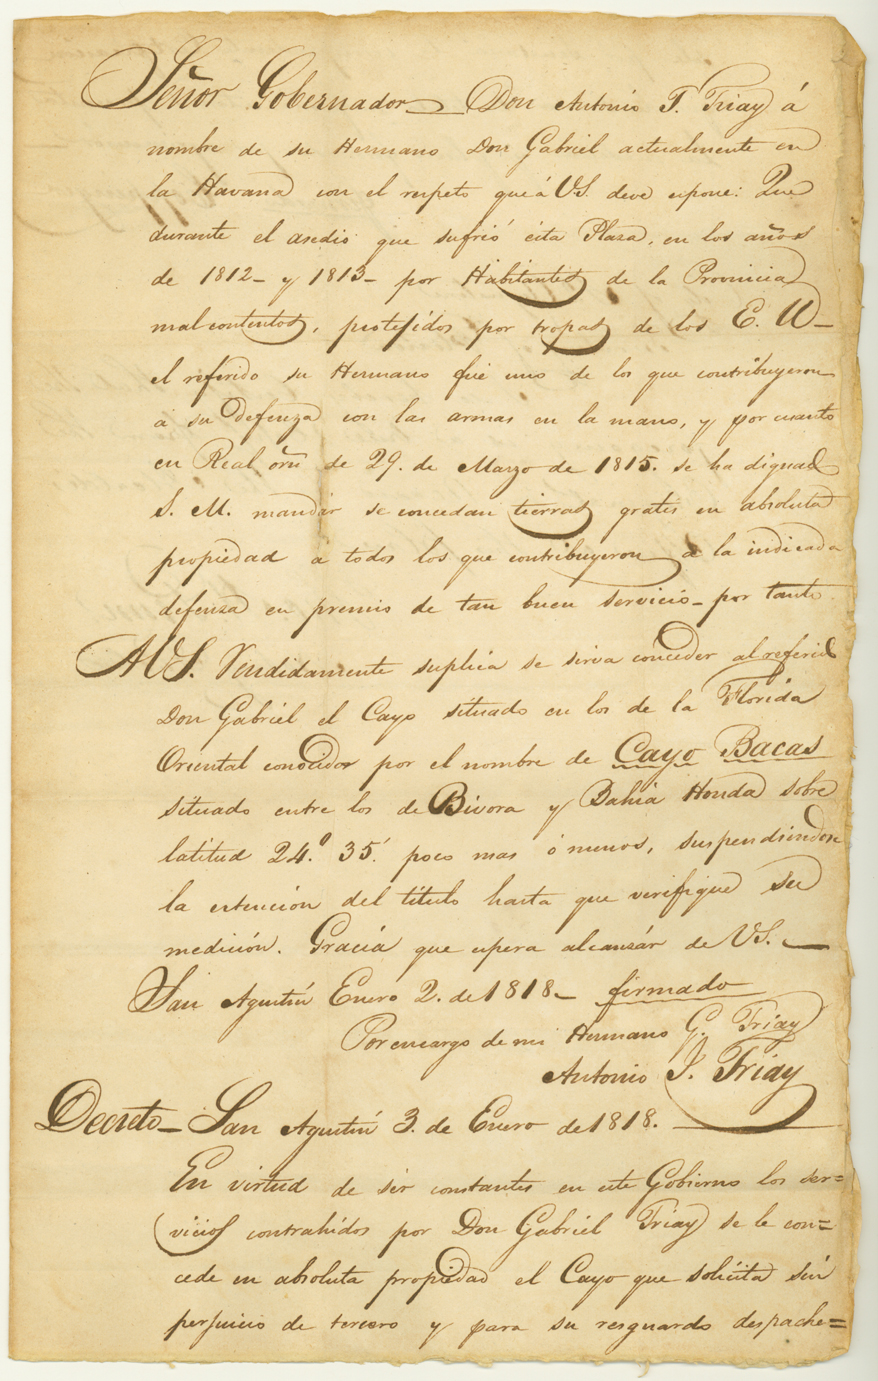 Señor Gobernador — Don Antonio T. Triay á
nombre de su Hermano Don Gabriel actualmente en
la Havana con el respeto que á VS. deve espone: Que
durante el asedio que sufrió ésta Plaza, en los años
de 1812 - y 1813 - por Habitantes de la Provincia
malcontentos, protejidos por tropas de los E. U —
el referido su Hermano fué uno de los que contribuyeron
á su defenza con las armas en la mano, y por cuanto
en Real orn de 29. de Marzo de 1815. se ha dignado
S. M. mandár se concedan tierras gratis en absoluta
propiedad á todos los que contribuyeron á la indicada
defenza en premio de tan buen servicio - por tanto
A VS. Rendidamente suplica se sirva conceder al referido
Don Gabriel el Cayo situado en los de la Florida
Oriental conocidos por el nombre de Cayo Bacas
situado entre los de Bívora y Bahia Honda sobre
latitud 24.º 35.' poco mas ó menos, suspendiendose
la estención del título hasta que verifique su
medición. Gracia que espera alcanzár de VS. —
San Agustin Enero 2. de 1818 - firmado
Por encargo de mi Hermano G. Triay
Antonio J. Triay
Decreto - San Agustin 3. de Enero de 1818. —
En virtud de sér constantes en este Gobierno los ser=
vicios contrahidos por Don Gabriel Triay se le con=
cede en absoluta propiedad el Cayo que solicita sin
perjuicio de tercero y para su resguardo despache=